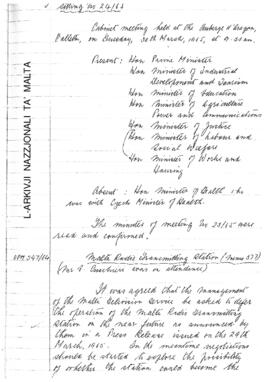 Sitting No 24/65
Cabinet meeting held at the Auberge d'Aragon,
Valletta, on Tuesday, 30th March, 1965, at 9.30 am.
Present: Hon Prime Minister
Hon Minister of Industrial
Development and Tourism
Hon Minister of Education
Hon Minister of Agriculture
Power and Communications
Hon Minister of Justice
Hon Minister of Labour and
Social Welfare
Hon Minister of Works and
Housing
Absent: Hon Minister of Health who
was with Czech Minister of Health.
The minutes of meeting No 23/65 were
read and confirmed.
Malta Radio Transmitting Station (Memo 577)
was in attendance)
It was agreed that the management
of the Malta Television Service be asked to defer
the operation of the Malta Radio Transmitting
Station in the near future as announced by
them in a Press Release issued on the 29th
March, 1965. In the meantime negotiations
should be started to explore the possibility
of whether the station could become the
L-ARKIVJI NAZZJONALI TA' MALTA